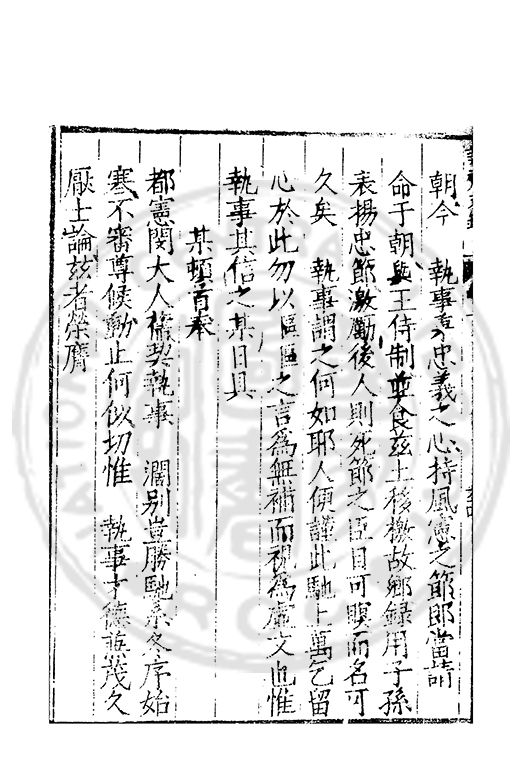 朝今　執事秉忠義之心持風憲之節即當請
命于朝與王侍制並食茲土移檄故鄉録用子孫
表揚忠節激勵後人則死節之臣目可瞑而名可
久矣　執事謂之何如耶人便謹此馳上萬乞留
心於此勿以區區之言爲無補而視爲虚文也惟
執事其信之某日具
某頓首奉
都憲閔大人㒒契執事　濶别豈勝馳系冬序始
寒不審尊候動止何似切惟　執事才德兼茂久
厭士論茲者榮膺